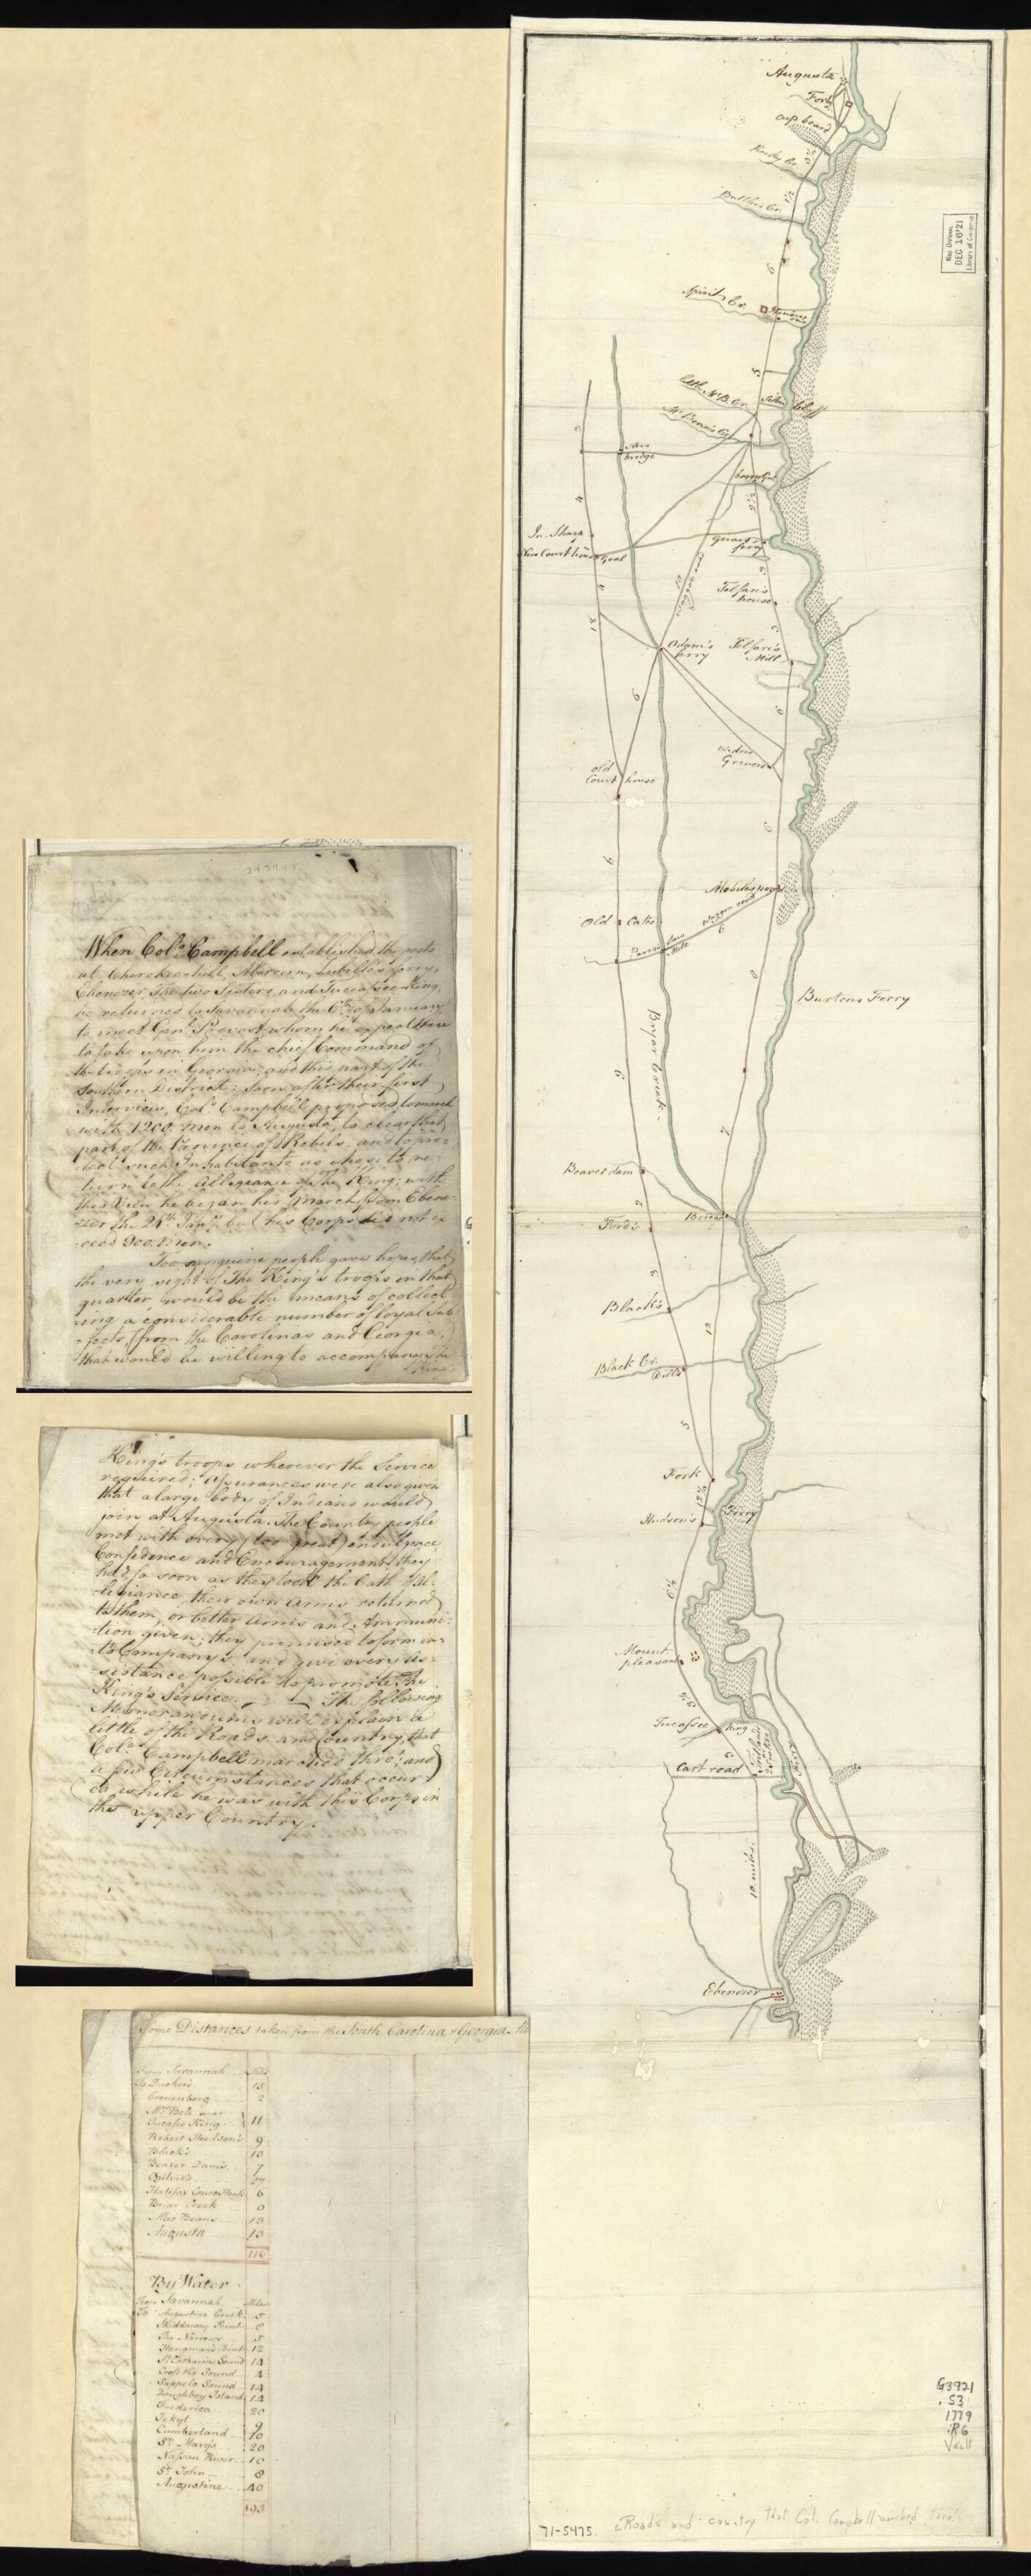 Augusta
Fort
Cupboard
Rocky Cr.
Butler's Cr.
Map Division
DEC 16 '21
Library of Congress
Spirit Cr.
5
McBean's Cr.
New
bridge
4
Jn. Sharp
New Court house
Goal
ferry
Telfair's
house
4
Adam's
ferry
Telfair's
Mill
6
Widow
Greiner
Old
Court house
9
6
Mobiles pond
Waggon road
6
Old Oaks
Burtons Ferry
6
Bryar Creek
7
Beaver dam
2
Ford's
3
Black's
12
Black Cr.
5
Fork
Hudson's
Ferry
Mount
pleasant
Tucasee King
Cart road
10 miles
Ebenezer
When Colo. Campbell established the posts
at Cherokee-hill, Abercorn, Zubillo's ferry,
Ebenezer, The two Sisters, and Tuccassee King,
he returned to Savannah the 6th of January
to meet Genl. Prevost, whom he expected there
to take upon him the chief Command of
the troops in Georgia, and this part of the
Southern District: Soon after their first
Interview, Colo. Campbell proposed to march
with 1200 Men to Augusta, to clear that
part of the Province of Rebels, and to pro-
tect such Inhabitants as chose to re-
turn to the Allegiance of The King: with
this View he began his march from Ebene-
zer the 24th Jany. but his Corps did not ex
ceed 900 Men.
Too sanguine people gave hopes, that
the very sight of The King's troops in that
quarter would be the means of collect
-ing a considerable number of loyal Sub-
-jects, (from the Carolinas and Georgia,)
that would be willing to accompany The
King's
King's troops wherever the Service
required; assurances were also given
that a large body of Indians would
join at Augusta. The Country people
met with every (too great) indulgence,
Confidence and Encouragement; they
had so soon as they took the Oath of al-
legiance, their own Arms returned
to them, or better Arms and Ammuni-
tion given; they promised to form in-
to Companys, and give every as-
sistance possible to promote The
King's Service. The following
Memorandums will explain a
little of the Roads and Country that
Colo. Campbell marched thro', and
a few Circumstances that occur'
ed while he was with this Corps in
the upper Country.
Some Distances taken from the South Carolina & Georgia
From Savannah Miles
Robert Hudson's 9
Black's 13
Beaver Dam's 7
Ogilvie's 27
Halifax Court House 6
Briar Creek
Mac Beans 13
Augusta 13
116
By Water
From Savannah Miles
To Augustine Creek 5
Skiddaway Point
The Narrows 5
Hangman's Point 12
St. Catharins Sound 14
Cross the Sound 4
Sappelo Sound 14
Doughboy Island 14
Frederica 20
Jekyl 9
Cumberland 10
St. Mary's 20
Nassau River 10
St. John 8
Augustine 40
193
G3921
.S3
1779
.R6
Vault
71-5475
Roads and country that Col. Campbell marched thro'